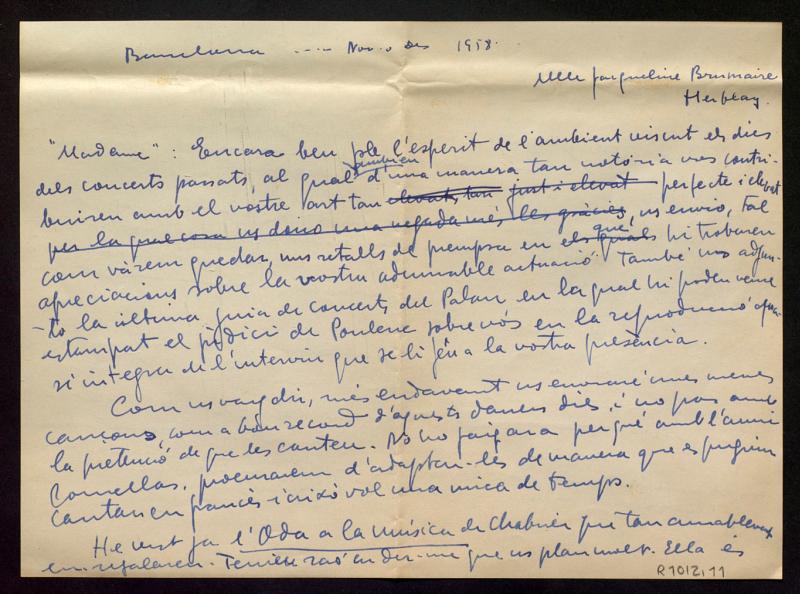 Barcelona ---- Nov.e des 1958.
Mlle Jacqueline Brumaire
Herblay.
"Madame": Encara ben ple l'esperit de l'ambient viscut els dies
dels concerts passats, al qual també d'una manera tan notòria vos contri-
buiren amb el vostre art tan elevat, tan just i elevat perfecte i elevat
per la que cosa us dono una vegada més les gràcies, us envio, tal
com vàrem quedar, uns retalls de premsa en els quals què hi trobaren
apreciacions sobre la vostra admirable actuació. També us adjun-
to la última guia de concerts del Palau en la qual hi podeu veure
estampat el judici de Poulenc sobre vós en la reproducció qua-
si íntegra de l'interviu que se li féu a la vostra presència.
Com us vaig dir, més endavant us enviaré unes meves
cançons, com a bon record d'aquests darrers dies, i no pas amb
la pretenció de que les canteu. No ho faig ara perquè amb l'amic
Comellas, procurarem d'adaptar-les de manera que es puguin
cantar en francès i això vol una mica de temps.
He vist ja l'Oda a la música de Chabrier que tan amablement
em regalaren. Teníeu raó en dir-me que us plau molt. Ella és
R 1012,11